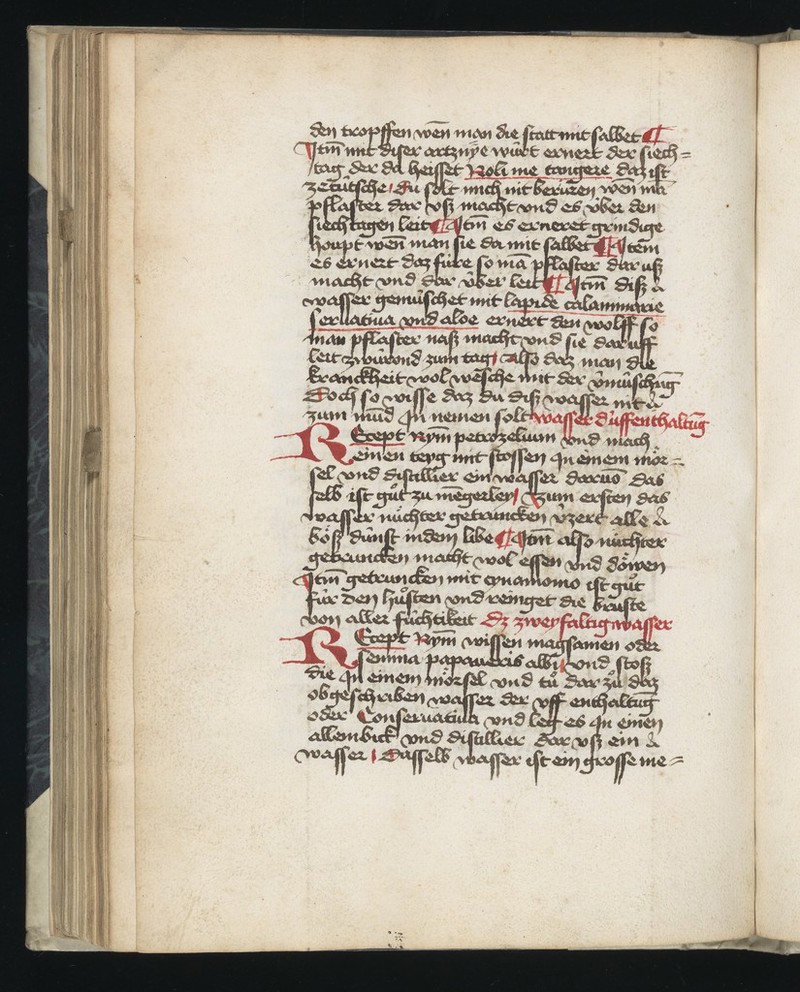 den tropffen wen̄ man die statt mit salbet ¶
Jtm̄ mit diser artznÿe würt ernert der siech=
tag der da heisset Noli me tangere daz ist
ze tütsche du solt mich nit beruͤren wen mā
pflaster dar vß macht vnd es v̈ber den
siechtagen leit ¶ Jtm̄ es erneret grindige
houpt wen̄ man sie da mit salbet ¶ Jtēm
es ernert daz füre so mā pflaster dar uß
macht vnd dar v̈ber leit ¶ Jtm̄ diß
wasser gemüschet mit lapide calamnarie
seruatiua vnd aloe ernert den wolff so
man pflaster naß macht vnd sie dar uff
leit zwürond zum tag also daz man die
kranckheit wol wesche mit der v̄müschūg
Doch so wisse daz du diß wasser nit
zum mūd Jn nemen solt wasser d' uffenthaltūg
REcept Nym̄ petrozelium vnd mach
einen teyg mit stossen Jn einem mör=
sel vnd distillier ein wasser daruō das
selb ist gůt zu mengerley zum ersten das
wasser nüchter getruncken v̈zert alle
böß dünst in dem libe ¶ Jtm̄ also nüchter
getruncken macht wol essen vnd döwen
Jtm̄ getruncken mit cynamomo ist gůt
für den hůsten vnd reinget die bruste
von aller füchtikeit Dz zweyfaltig wasser
REcept Nym̄ wissen magsamen oder
semina papaueris albi vnd stoß
die Jn einem mörsel vnd tů dar zů daz
obgeschriben wasser der vff enthaltūg
oder Conseruatiua vnd leg es Jn einen
allembick vnd distillier dar vß ein
wasser Dasselb wasser ist ein grosse me=